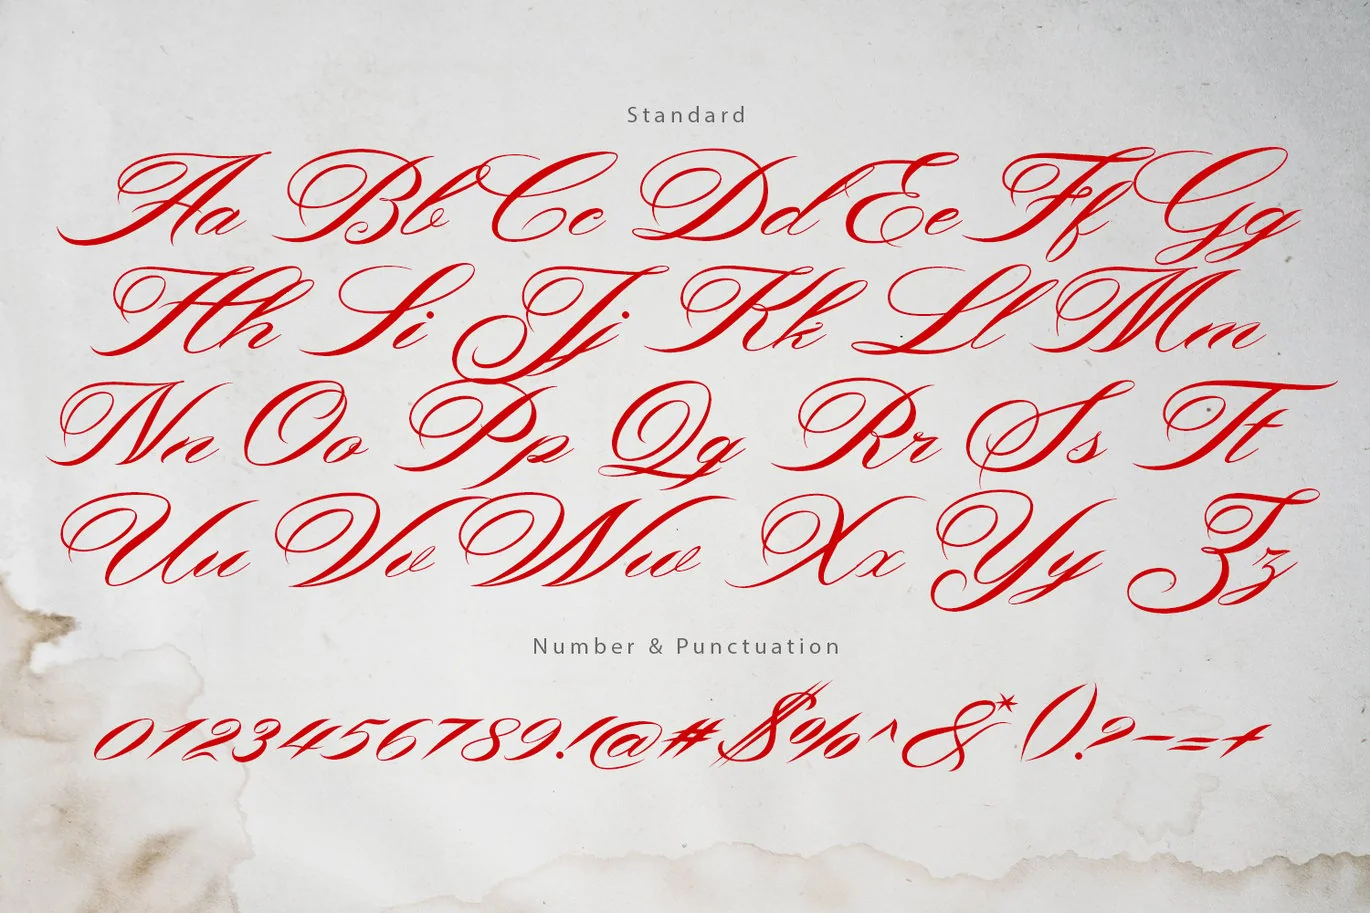 Standard
Aa Bb Cc Dd Ee Ff Gg
Hh Ii Jj Kk Ll Mm
Nn Oo Pp Qq Rr Ss Tt
Uu Vv Ww Xx Yy Zz
Number & Punctuation
0123456789.!@#$%^&*().?-–=+